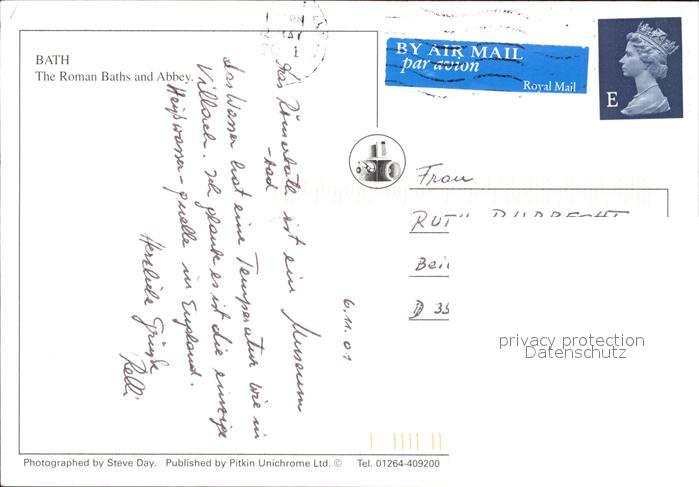 BATH
The Roman Baths and Abbey.
BY AIR MAIL
par avion
Royal Mail
E
6.11.01
Das Römerbath ist ein Museum
-bad
das Wasser hat eine Temperatur wie in
Villach. Ich glaube es ist die einzige
Heißwasser-quelle in England.
Herzliche Grüße
Frau
D 35
privacy protection
Datenschutz
Photographed by Steve Day. Published by Pitkin Unichrome Ltd. © Tel. 01264-409200